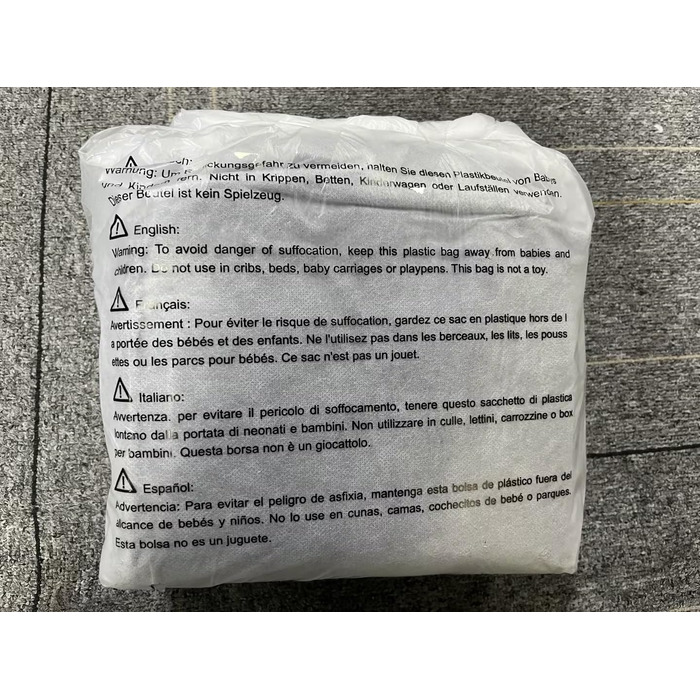 ckungsgefahr zu vermeiden, halten Sie diesen Plastikbeutel von Babys
Nicht in Krippen, Betten, Kinderwagen oder Laufställen verwenden.
Dieser Beutel ist kein Spielzeug.
English:
Warning: To avoid danger of suffocation, keep this plastic bag away from babies and
children. Do not use in cribs, beds, baby carriages or playpens. This bag is not a toy.
Français:
Avertissement : Pour éviter le risque de suffocation, gardez ce sac en plastique hors de l
a portée des bébés et des enfants. Ne l'utilisez pas dans les berceaux, les lits, les pouss
ettes ou les parcs pour bébés. Ce sac n'est pas un jouet.
Italiano:
Avvertenza. per evitare il pericolo di soffocamento, tenere questo sacchetto di plastica
lontano dalla portata di neonati e bambini. Non utilizzare in culle, lettini, carrozzine o box
per bambini. Questa borsa non è un giocattolo.
Español:
Advertencia: Para evitar el peligro de asfixia, mantenga esta bolsa de plástico fuera del
alcance de bebés y niños. No lo use en cunas, camas, cochecitos de bebé o parques.
Esta bolsa no es un juguete.